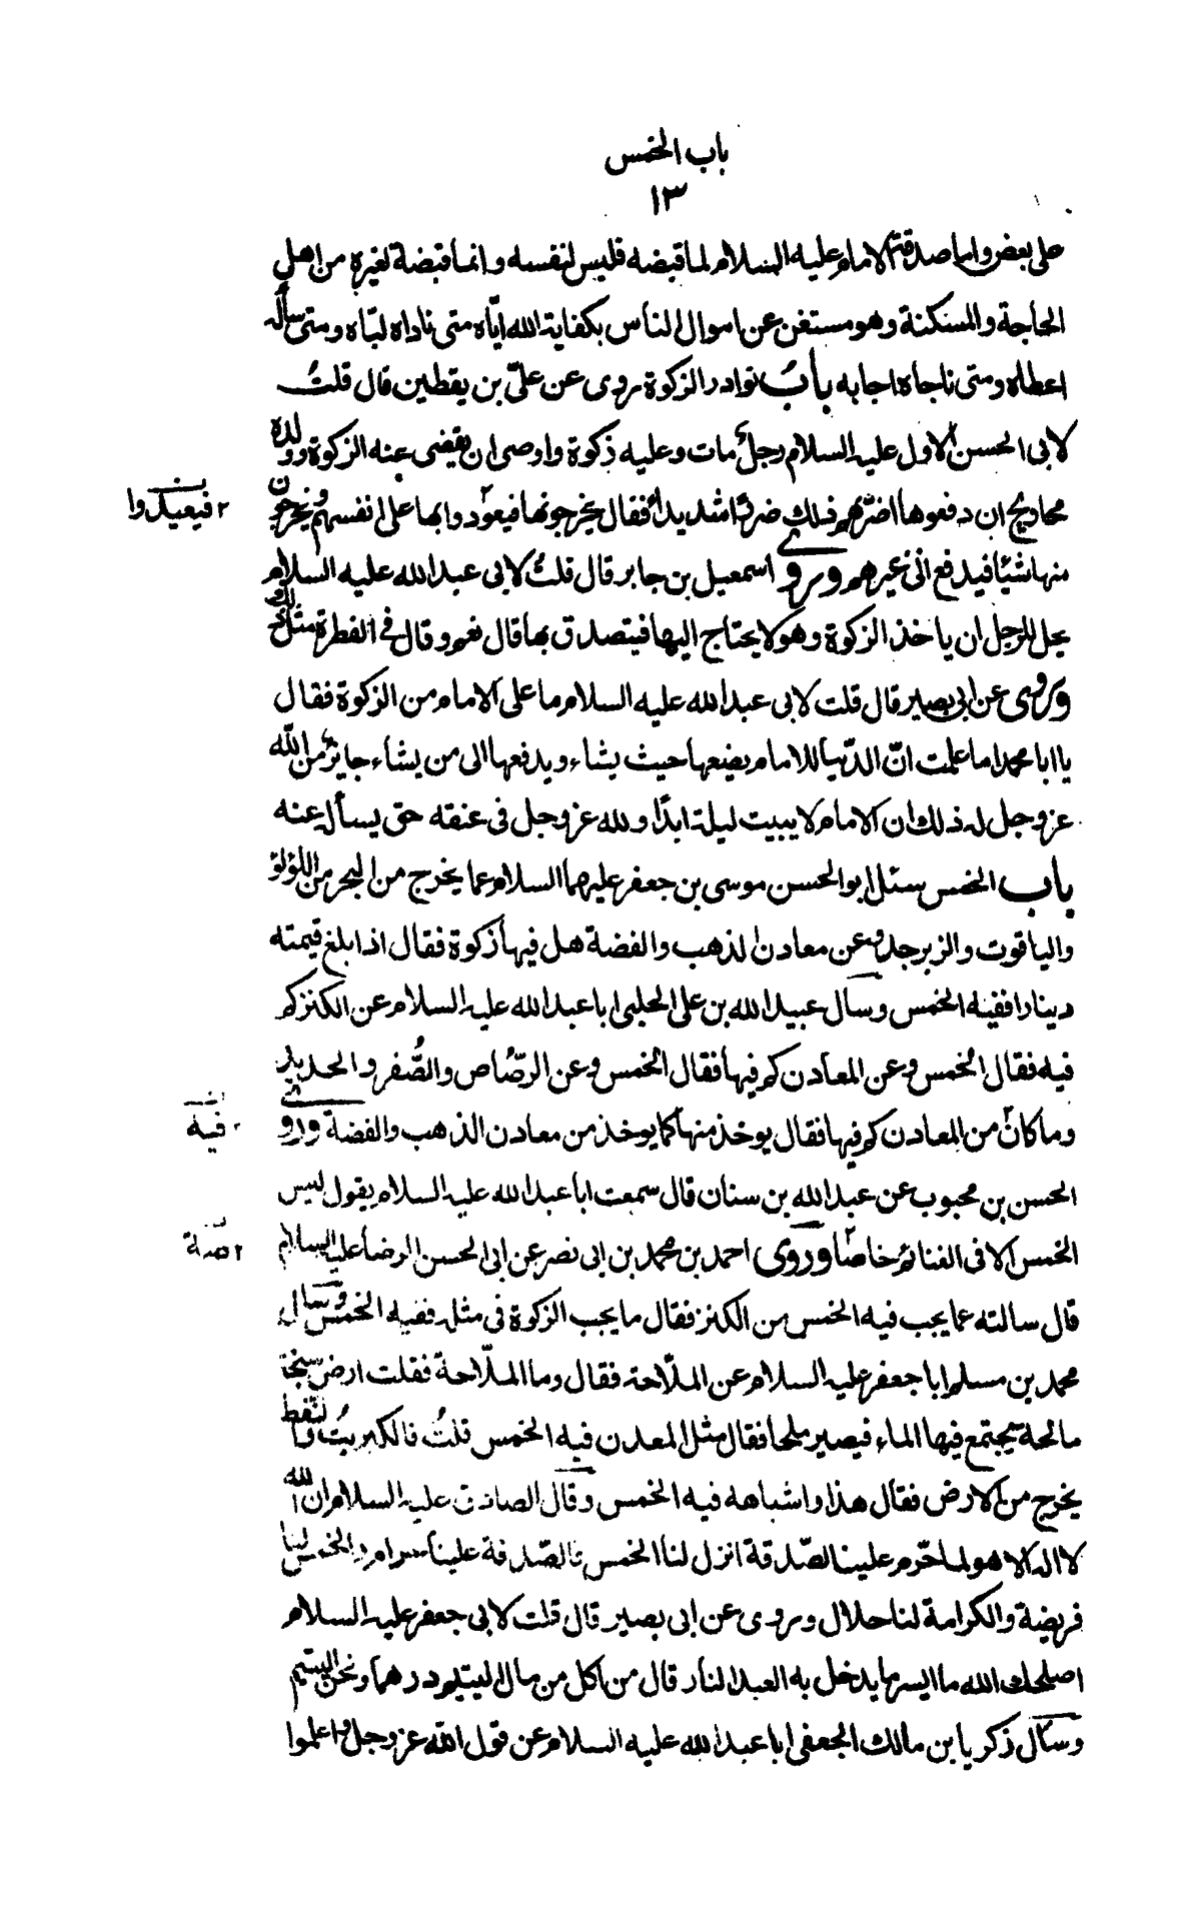 باب الخمس
١٣
على بعض واما صدقة الامام عليه السلام لما قبضه فليس لنفسه وانما قبضة لغيره من اهل
الحاجة والمسكنة وهو مستغن عن اموال الناس بكفاية الله ايّاه متى ناداه لبّاه ومتى سأله
اعطاه ومتى ناجاه اجابه بابُ نوادر الزكوة روى عن علىّ بن يقطين قال قلتُ
لابى الحسن الاول عليه السلام رجلٌ مات وعليه زكوة واوصى ان يقضى عنه الزكوة وولده
محاويج ان دفعوها اضرّ بهم ذلك ضررًا شديدًا فقال يخرجونها فيعودوا بها على انفسهم ويخرجون
٢ فيعيدوا
منها شيئا فيدفع الى غيرهم وروى اسمعيل بن جابر قال قلتُ لابى عبد الله عليه السلام
يحل للرجل ان ياخذ الزكوة وهو لا يحتاج اليها فيتصدق بها قال نعم وقال فى الفطرة مثل ذلك
وروى عن ابى بصير قال قلت لابى عبد الله عليه السلام ما على الامام من الزكوة فقال
يا ابا محمد اما علمت انّ الدّنيا للامام يضعها حيث يشاء ويدفعها الى من يشاء جايز من الله
عز وجل له ذلك ان الامام لا يبيت ليلة ابدًا ولله عز وجل فى عنقه حق يسأل عنه
باب الخمس سئل ابو الحسن موسى بن جعفر عليهما السلام عما يخرج من البحر من اللؤلؤ
والياقوت والزبرجد وعن معادن الذهب والفضة هل فيها زكوة فقال اذا بلغ قيمته
دينارا ففيه الخمس وسأل عبيد الله بن على الحلبى ابا عبد الله عليه السلام عن الكنز كم
فيه فقال الخمس وعن المعادن كم فيها فقال الخمس وعن الرصّاص والصُّفر والحديد
وما كان من المعادن كم فيها فقال يوخذ منها كما يوخذ من معادن الذهب والفضة وروى
فيه
الحسن بن محبوب عن عبد الله بن سنان قال سمعت ابا عبد الله عليه السلام يقول ليس
الخمس الا فى الغنائم خاصّا وروى احمد بن محمد بن ابى نصر عن ابى الحسن الرضا عليه السلام
قال سالته عما يجب فيه الخمس من الكنز فقال ما يجب الزكوة فى مثله ففيه الخمس وسال
محمد بن مسلم ابا جعفر عليه السلام عن الملّاحة فقال وما الملّاحة فقلت ارض سبخة
مالحة يجتمع فيها الماء فيصير ملحا فقال مثل المعدن فيه الخمس قلتُ فالكبريتُ والنفط
يخرج من الارض فقال هذا واشباهه فيه الخمس وقال الصادق عليه السلام ان الله
لا اله الا هو لما حرّم علينا الصّدقة انزل لنا الخمس فالصّدقة علينا حرام والخمس لنا
فريضة والكرامة لنا حلال وروى عن ابى بصير قال قلت لابى جعفر عليه السلام
اصلحك الله ما ايسر ما يدخل به العبد النار قال من اكل من مال اليتيم درهما ونحن اليتيم
وسأل زكريا بن مالك الجعفى ابا عبد الله عليه السلام عن قول الله عز وجل واعلموا